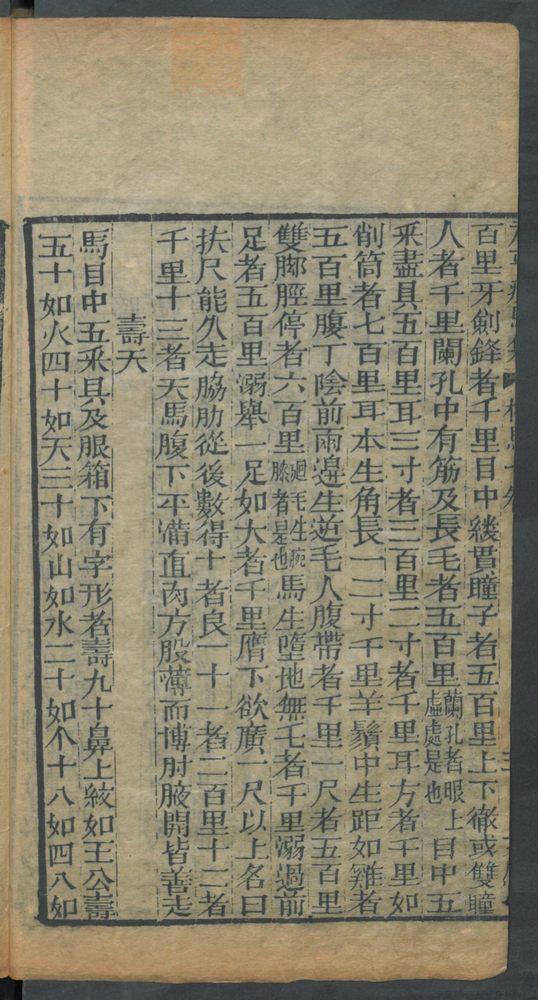 百里牙劍鋒者千里目中縷貫瞳子者五百里上下徹或雙瞳
人者千里闌孔中有筋及長毛者五百里蘭孔者眼上虛處是也目中五
采盡具五百里耳三寸者三百里二寸者千里耳方者千里如
削筒者七百里耳本生角長一二寸千里羊鬚中生距如雞者
五百里腹丁陰前兩邊生逆毛人腹帶者千里一尺者五百里
雙脚脛停者六百里迴毛生腕膝者是也馬生墮地無毛者千里溺過前
足者五百里溺舉一足如大者千里膺下欲廣一尺以上名曰
扶尺能久走脇肋從後數得十者良一十一者二百里十二者
千里十三者天馬腹下平滿直肉方股薄而博肘腋開皆善走
壽夭
馬目中五采具及服箱下有字形者壽九十鼻上紋如王公壽
五十如火四十如天三十如山如水二十如个十八如四八如